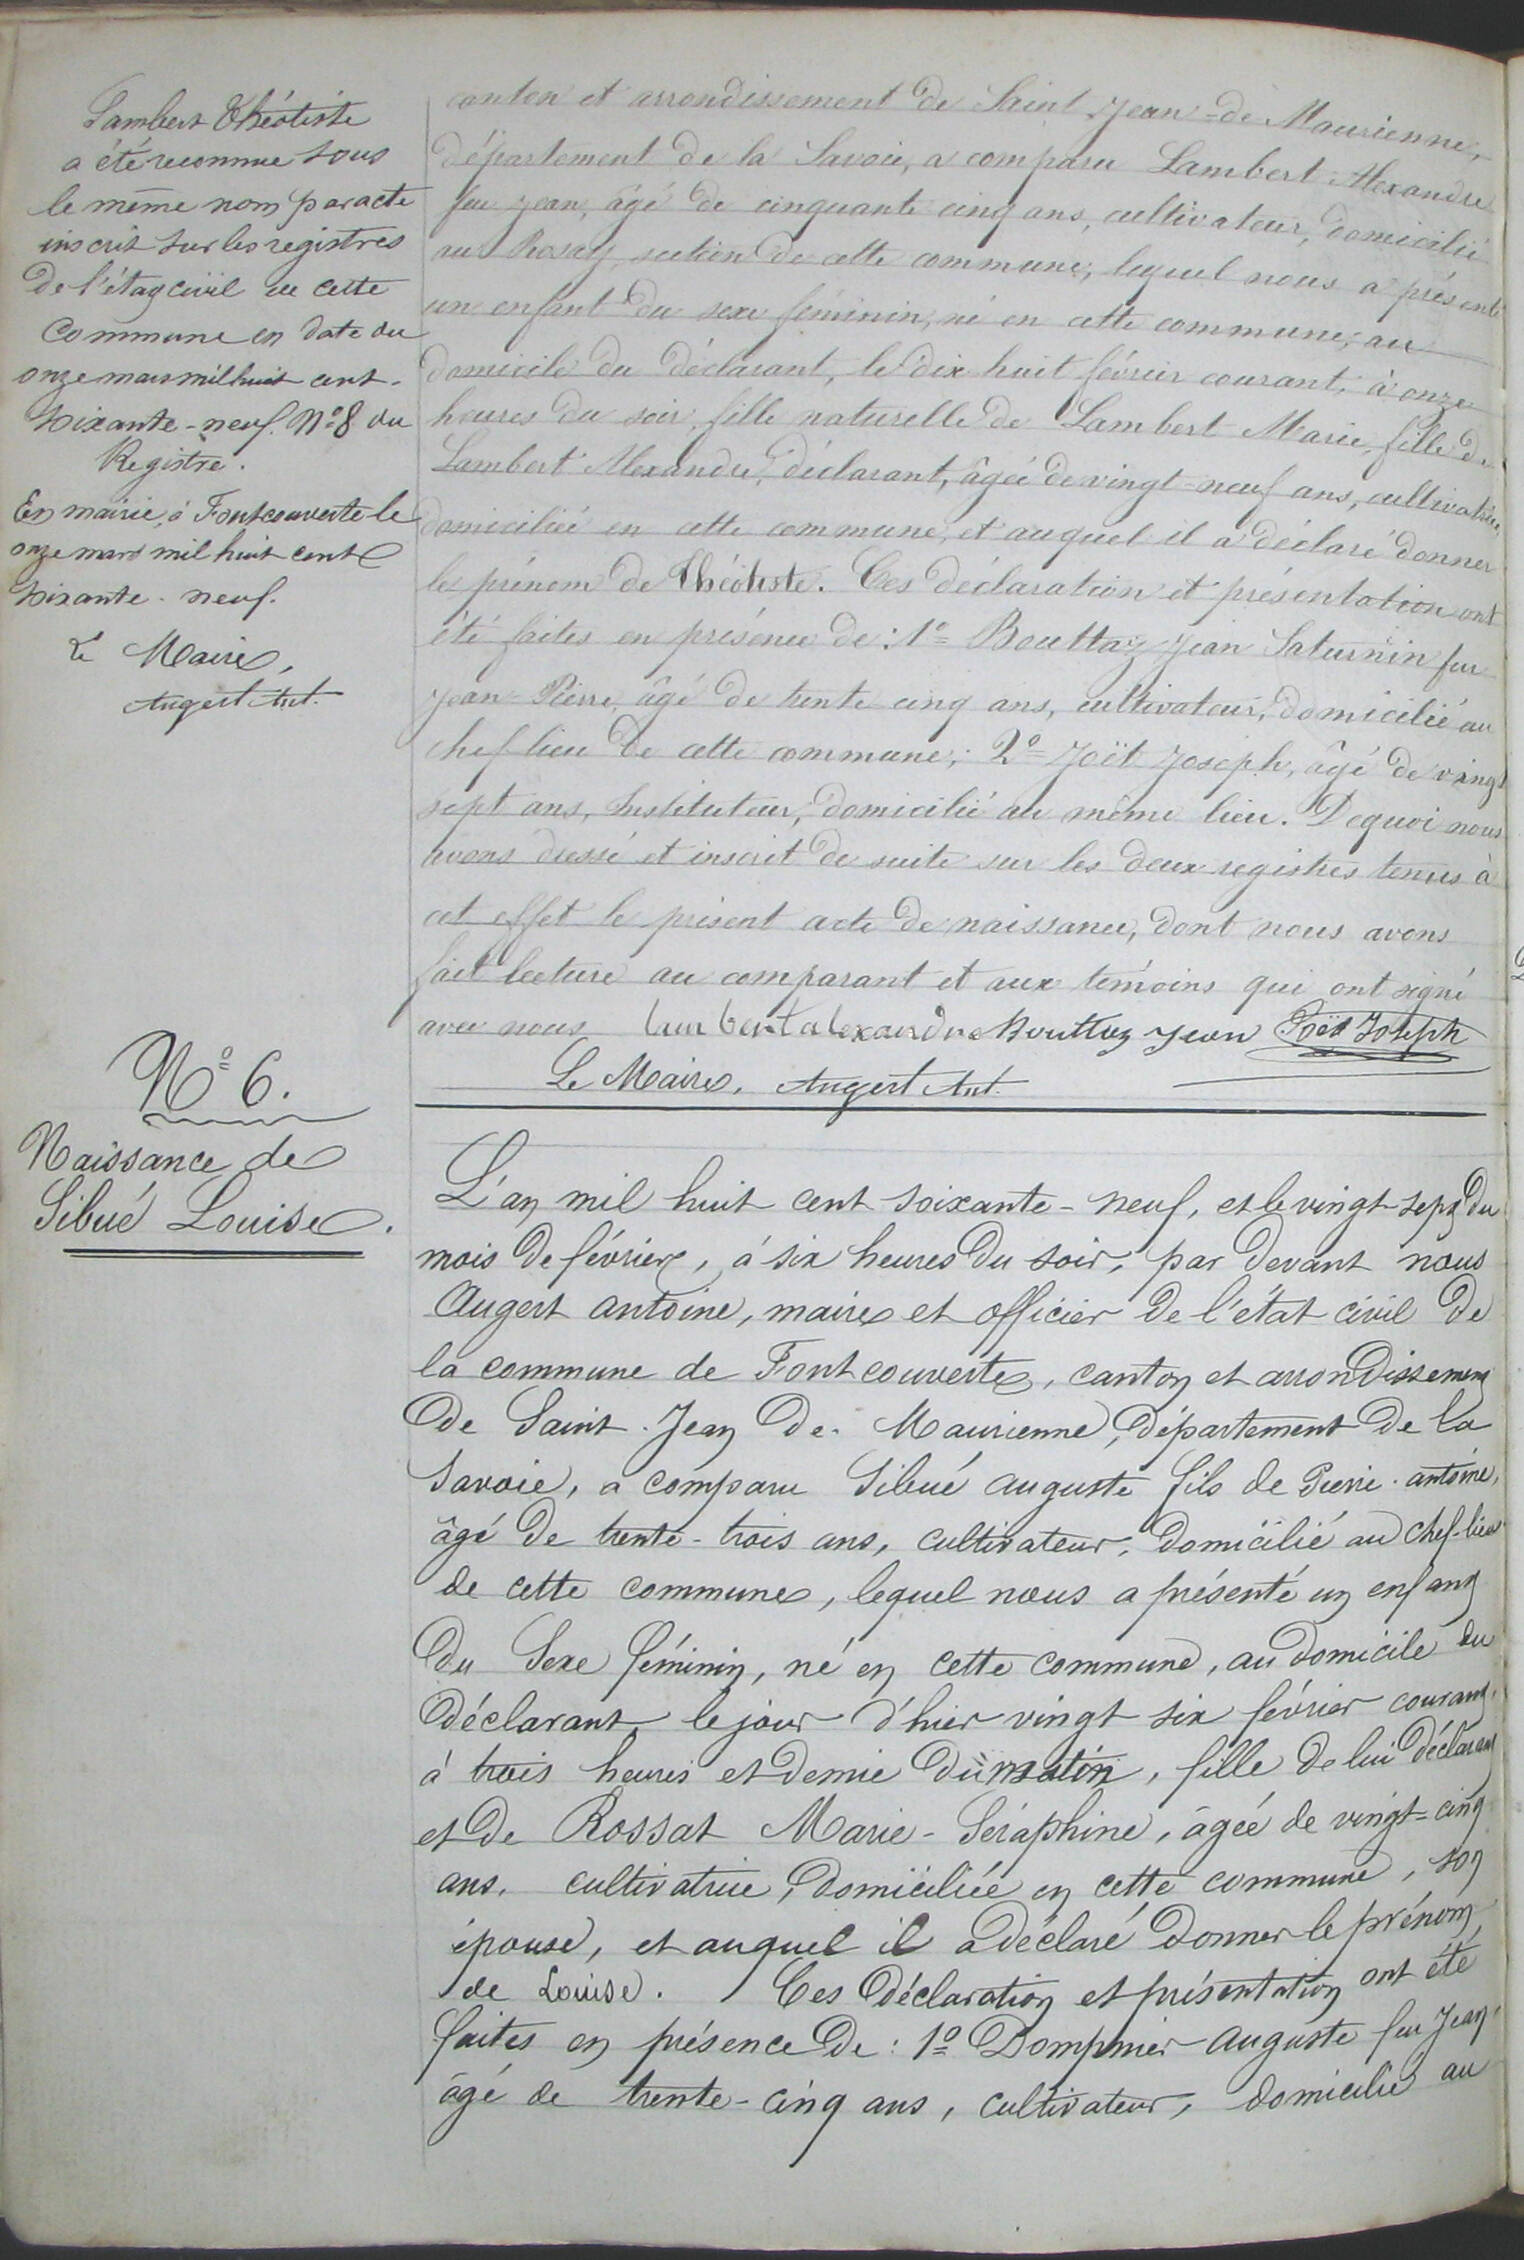 Lambert Théotiste
a été reconnue sous
le même nom par acte
inscrit sur les registres
de l'étaq civil de cette
commune en date du
onze mars mil huit cent
soixante-neuf. N° 8 du
Registre.
En mairie, à Fontcouverte le
onze mars mil huit cent
soixante-neuf.
Le Maire,
Augert Ant.
canton et arrondissement de Saint Jean-de Maurienne,
département de la Savoie, a comparu Lambert Alexandre
feu Jean, âgé de cinquante cinq ans, cultivateur, domicilié
au Rosay, section de cette commune, lequel nous a présenté
un enfant du sexe féminin, né en cette commune, au
domicile du déclarant, le dix huit février courant, à onze
heures du soir, fille naturelle de Lambert Marie, fille de
Lambert Alexandre, déclarant, âgée de vingt-neuf ans, cultivatrice,
domiciliée en cette commune, et auquel il a déclaré donner
le prénom de Théotiste. Ces déclaration et présentation ont
été faites en présence de : 1° Bouttaz Jean Saturnin feu
Jean-Pierre, âgé de trente cinq ans, cultivateur, domicilié au
chef lieu de cette commune ; 2° Joët Joseph, âgé de vingt
sept ans, Instituteur, domicilié au même lieu. De quoi nous
avons dressé et inscrit de suite sur les deux registres tenus à
cet effet le présent acte de naissance, dont nous avons
fait lecture au comparant et aux témoins qui ont signé
avec nous lambert alexandre Bouttaz Jean Joët Joseph
Le Maire, Augert Ant.
N° 6.
Naissance de
Sibué Louise.
L'an mil huit cent soixante-neuf, et le vingt-sept du
mois de février, à six heures du soir, par devant nous
Augert Antoine, maire et officier de l'état civil de
la commune de Fontcouverte, canton et arrondissement
de Saint-Jean de Maurienne, département de la
Savoie, a comparu Sibué Auguste fils de Pierre-Antoine,
âgé de trente-trois ans, cultivateur, domicilié au chef-lieu
de cette commune, lequel nous a présenté un enfant
du sexe féminin, né en cette commune, au domicile du
déclarant, le jour d'hier vingt six février courant,
à trois heures et demie du matin, fille de lui déclarant
et de Rossat Marie-Séraphine, âgée de vingt-cinq
ans, cultivatrice, domiciliée en cette commune, son
épouse, et auquel il a déclaré donner le prénom
de Louise. Ces déclaration et présentation ont été
faites en présence de : 1° Dompnier Auguste feu Jean
âgé de trente-cinq ans, cultivateur, domicilié au